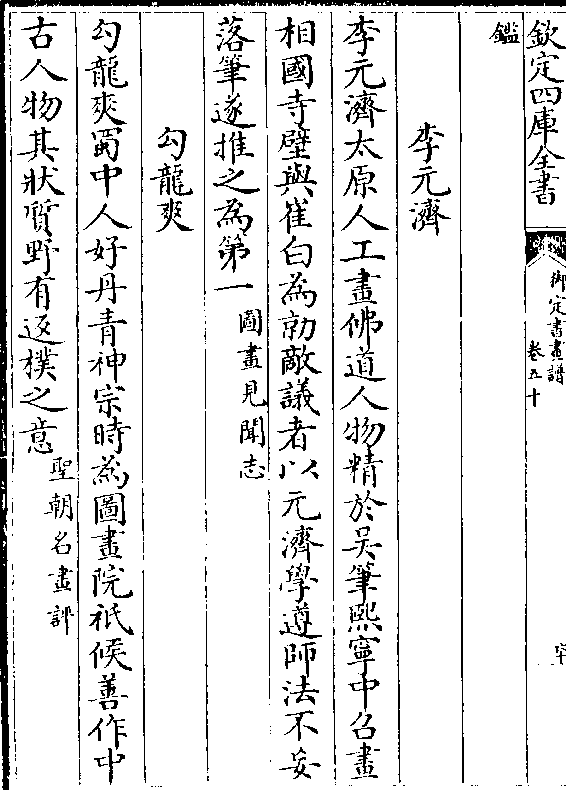 欽定四庫全書
御定書畫譜
卷五十
鑑
李元濟
李元濟太原人工畫佛道人物精於吳筆熙寧中召畫
相國寺壁與崔白為勍敵議者以元濟學遵師法不妄
落筆遂推之為第一 圖畫見聞志
勾龍爽
勾龍爽蜀中人好丹青神宗時為圖畫院祇候善作中
古人物其狀質野有返樸之意 聖朝名畫評